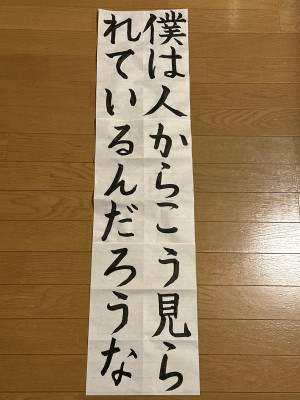 僕は人からこう見ら
れているんだろうな